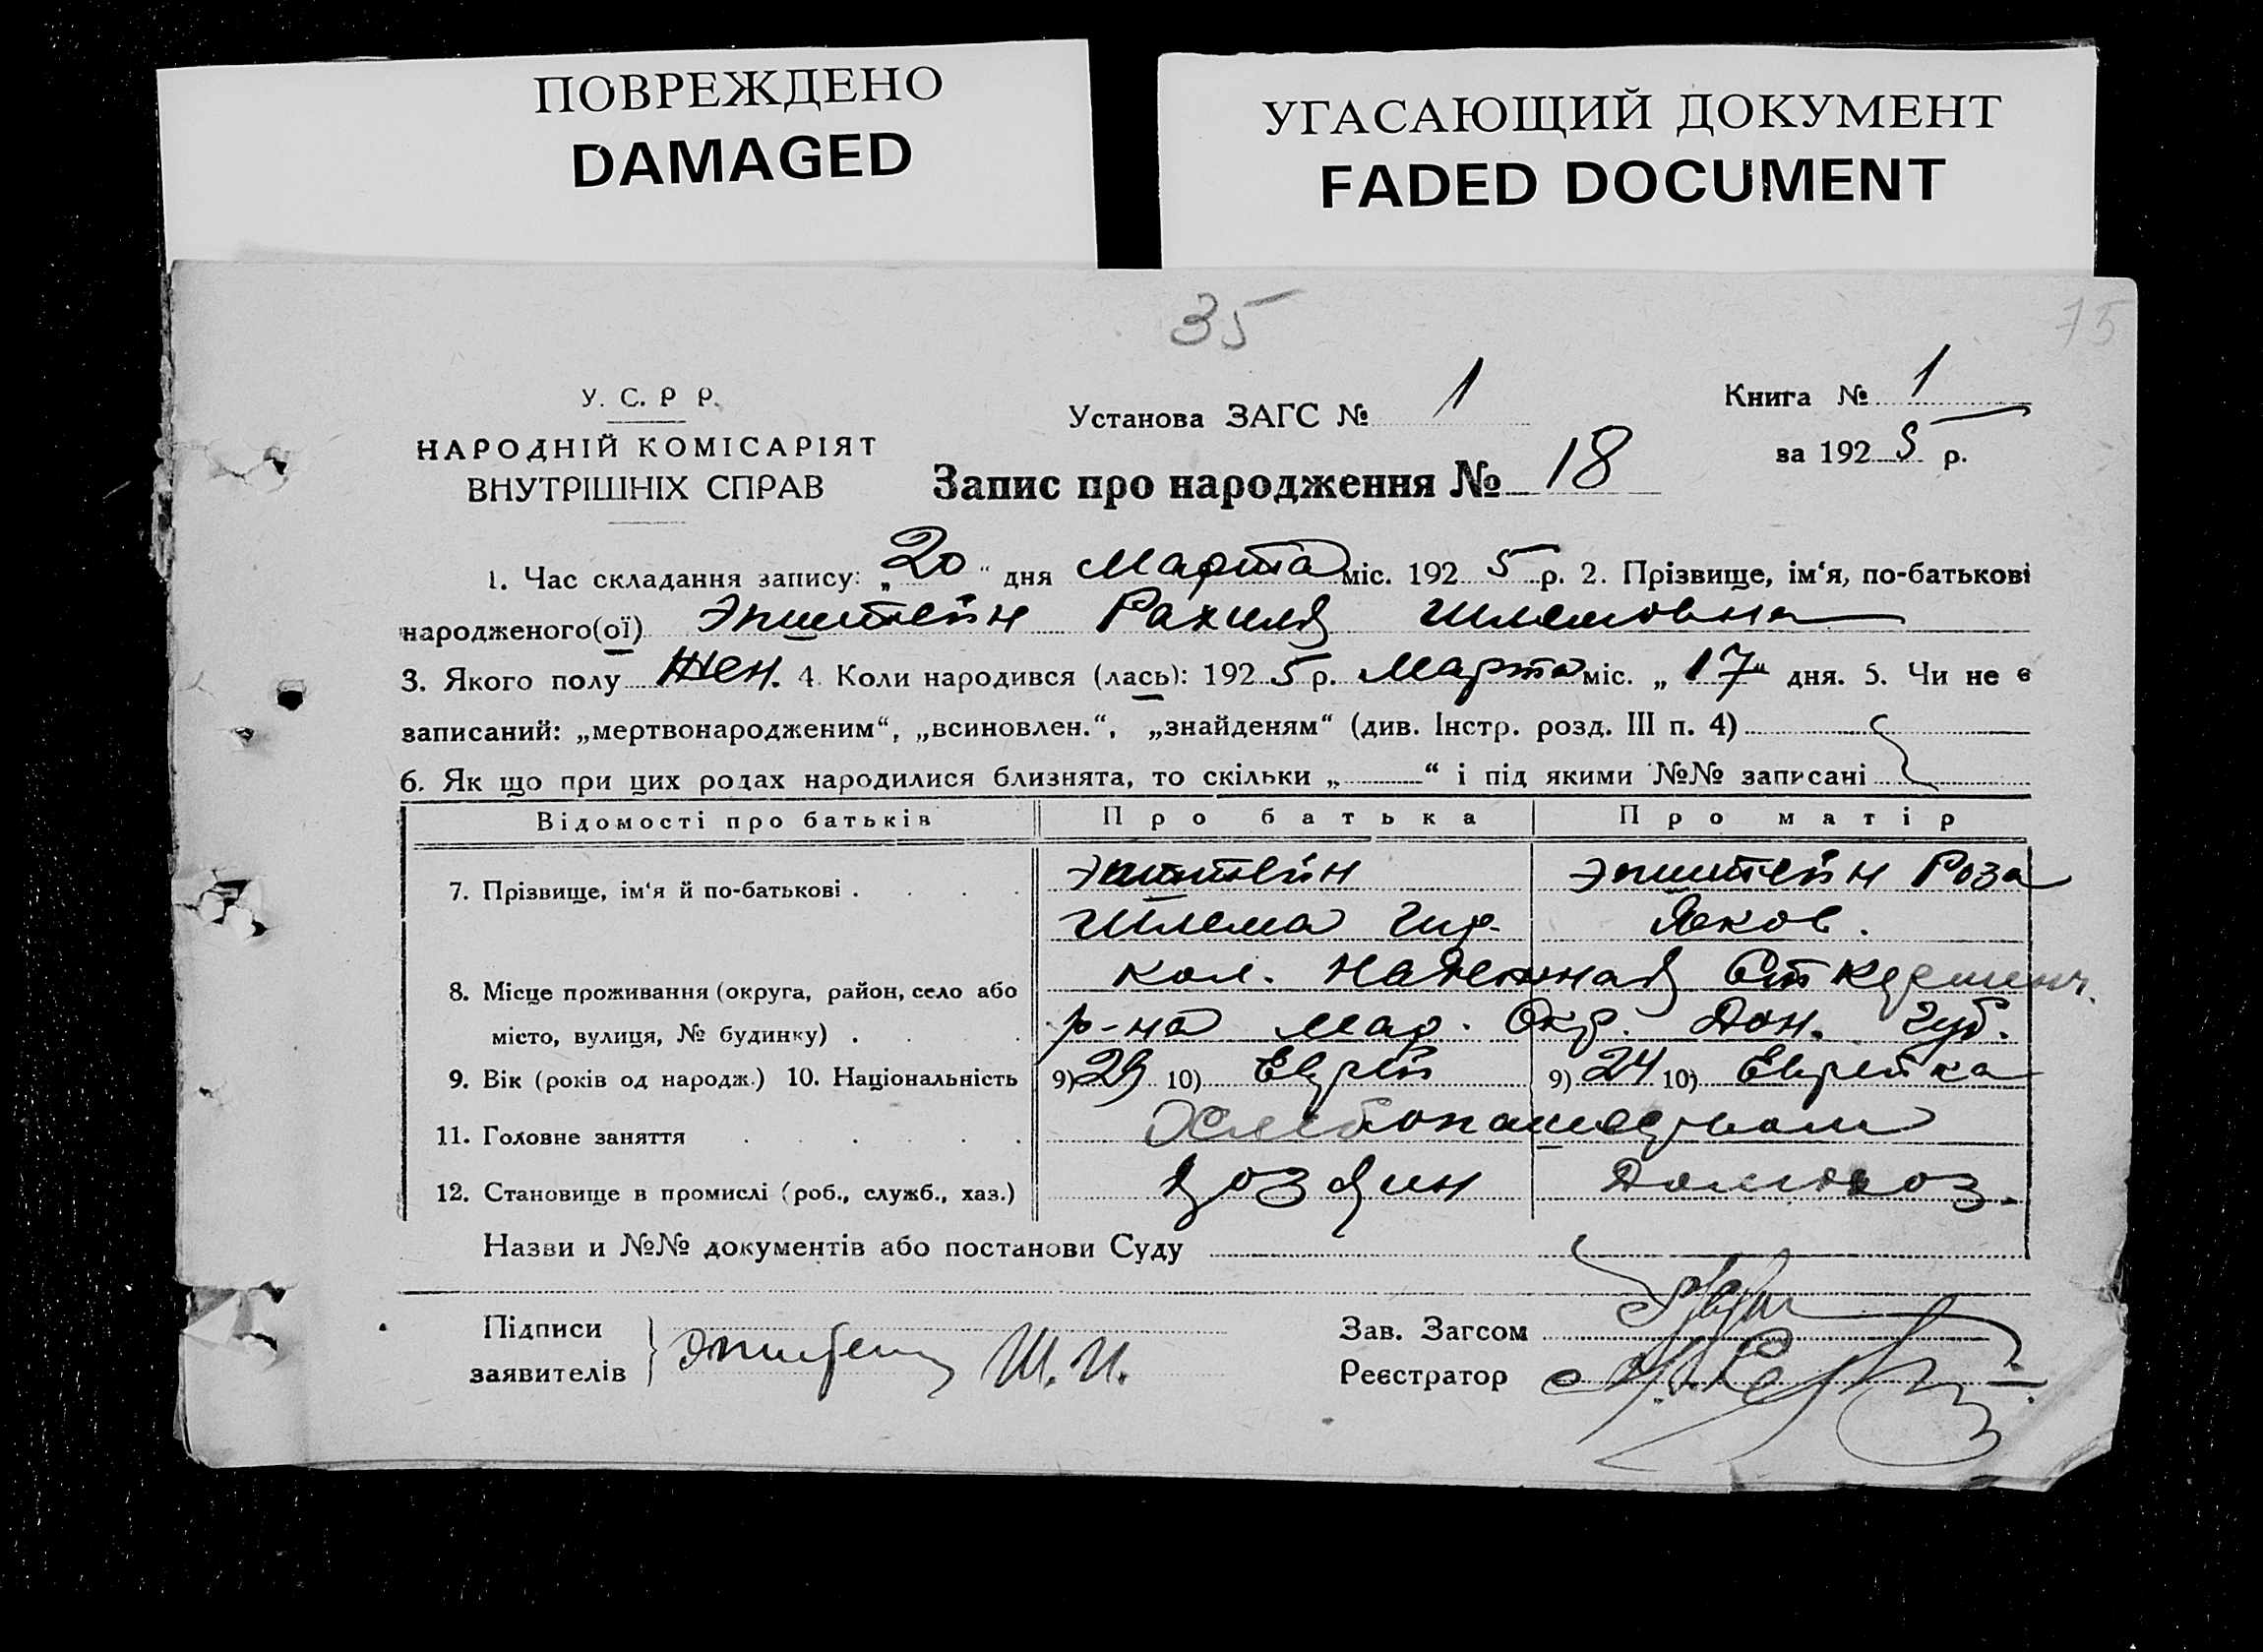 ПОВРЕЖДЕНО
DAMAGED
УГАСАЮЩИЙ ДОКУМЕНТ
FADED DOCUMENT
35
75
У. С. Р Р.
НАРОДНІЙ КОМІСАРІЯТ
ВНУТРІШНІХ СПРАВ
Установа ЗАГС № 1
Книга № 1
за 1925 р.
Запис про народження № 18
1. Час складання запису: „20“ дня Марта міс. 1925 р. 2. Прізвище, ім‘я, по-батькові
народженого(ої) Эпштейн Рахиля Шлемовна
3. Якого полу Жен. 4. Коли народився (лась): 1925 р. Марта міс. „17“ дня. 5. Чи не є
записаний: „мертвонародженим“, „всиновлен.“, „знайденям“ (див. Інстр. розд. III п. 4)
6. Як що при цих родах народилися близнята, то скільки „ “ і під якими №№ записані
Відомості про батьків Про батька Про матір
7. Прізвище, ім‘я й по-батькові . Эпштейн Эпштейн Роза
Шлема Яков.
8. Місце проживання (округа, район, село або кол. Надежная
місто, вулиця, № будинку) . р-на Мар. Окр. Дон. Губ.
9. Вік (років од народж.) 10. Національність 9) 29 10) Еврей 9) 24 10) Еврейка
11. Головне заняття
12. Становище в промислі (роб., служб., хаз.) хозяин Домохоз.
Назви и №№ документів або постанови Суду
Підписи
заявителів Эпштейн Ш. И.
Зав. Загсом
Реєстратор